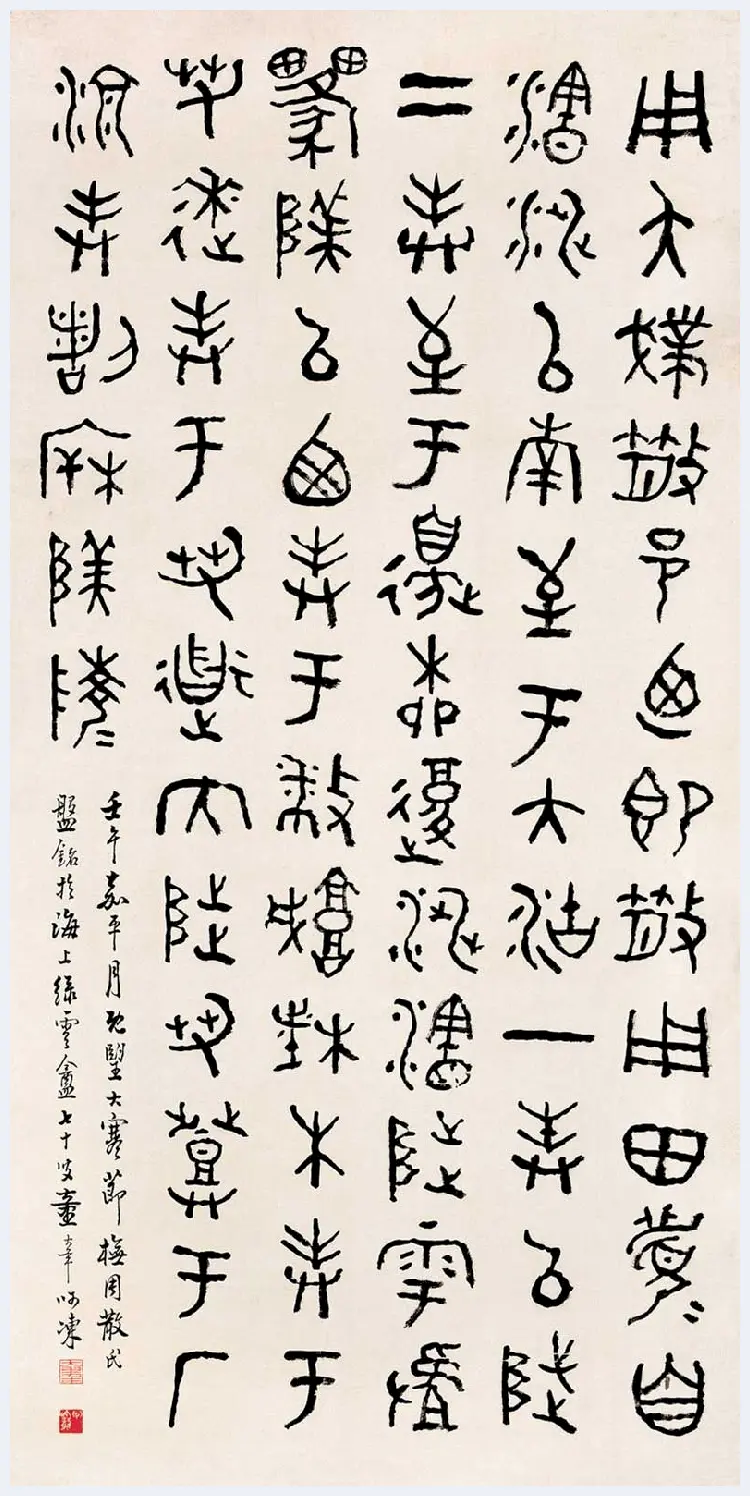 用夨撲散邑廼即散用田眉自
瀗涉以南至于大沽一奉以陟
二奉至于邊柳復涉瀗陟雩
以西奉于敝城楮木奉于
芻逨奉于芻道內陟芻登于厂
湶奉割
壬午嘉平月既望大寒節橅周散氏
盤銘於海上綠雲盦七十叟童大年呵凍